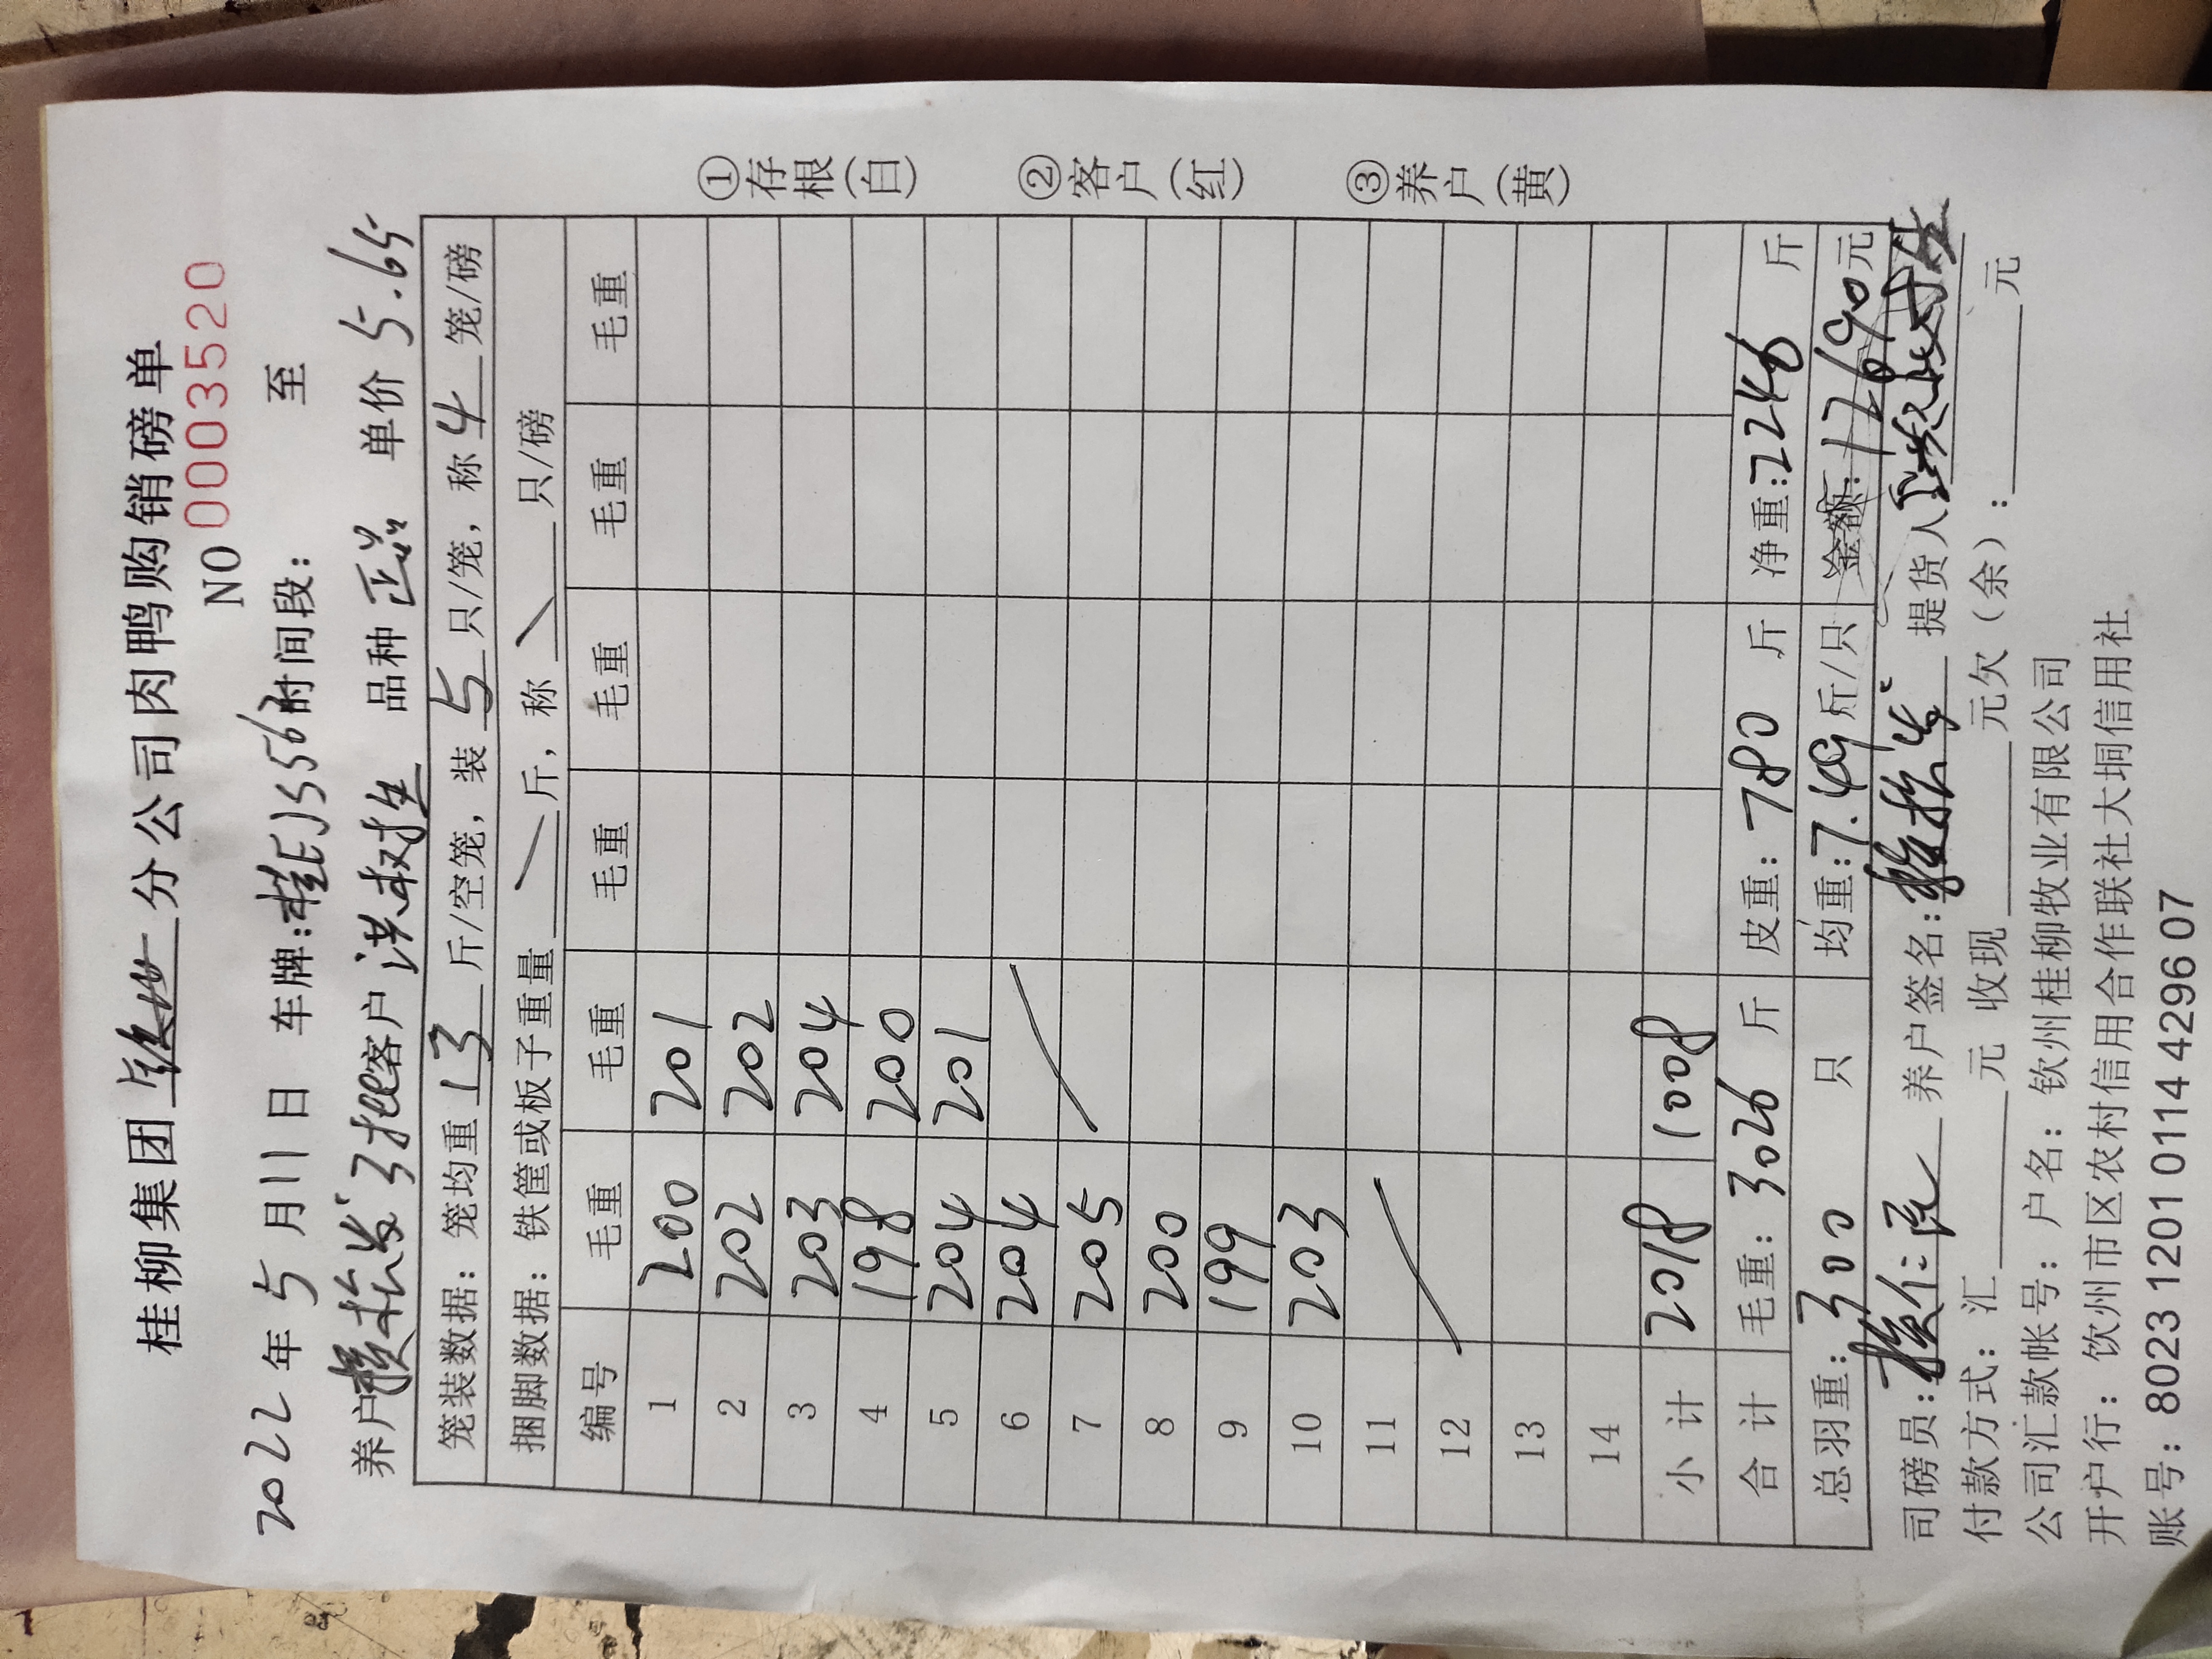 桂柳集团 分公司肉鸭购销磅单
NO 0003520
2022年5月11日 车牌:桂EJ5561 时间段: 至
养户 客户洪树生 品种正品 单价5.65
笼装数据: 笼均重13斤/空笼, 装5只/笼, 称4笼/磅
捆脚数据: 铁筐或板子重量 斤, 称 只/磅
编号 毛重 毛重 毛重 毛重 毛重 毛重
1 200 201
2 202 202
3 203 204
4 198 200
5 204 201
6 204
7 205
8 200
9 199
10 203
11
12
13
14
小计 2018 1008
合计 毛重: 3026 斤 皮重: 780 斤 净重: 2246 斤
总羽重: 300 只 均重: 7.49 斤/只 金额: 12690元
司磅员: 养户签名: 提货人
付款方式: 汇 元 收现 元欠(余): 元
公司汇款帐号: 户名: 钦州桂柳牧业有限公司
开户行: 饮州市区农村信用合作联社大垌信用社
账号: 8023 1201 0114 4296 07
①存根(白)
②客户(红)
③养户(黄)